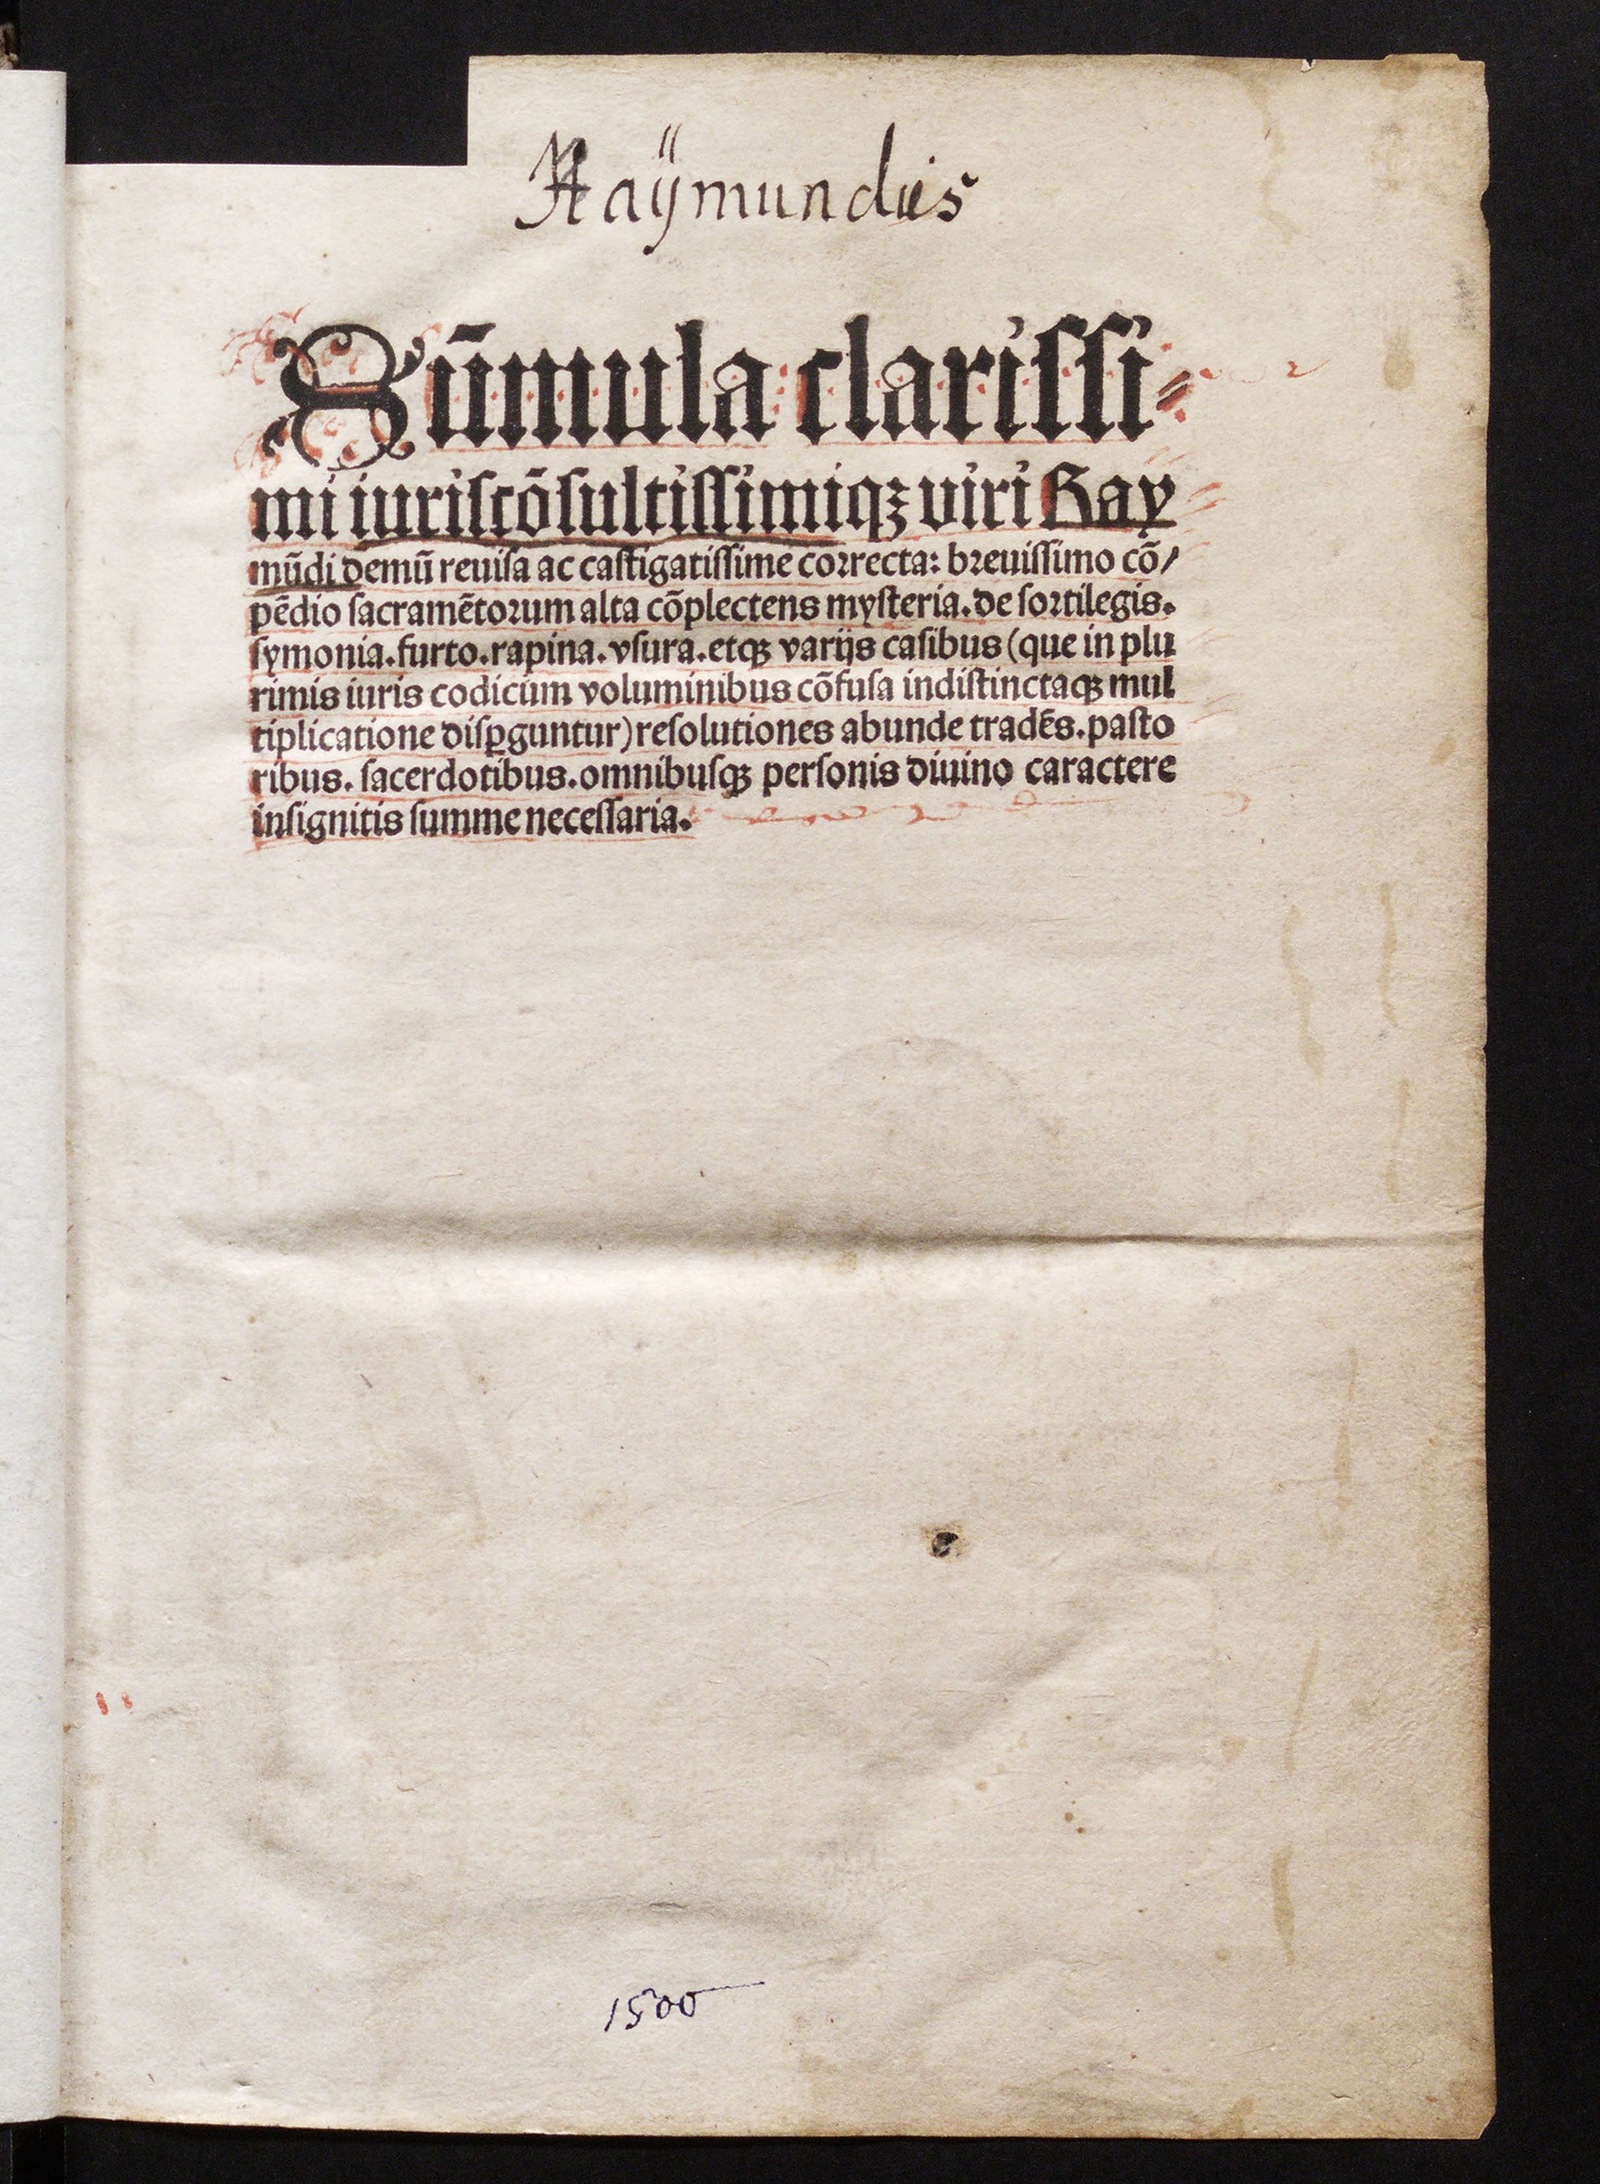 Raÿmundus
Sūmula clariſſi⸗
mi iuriſcōſultiſſimiqꝫ viri Ray
mūdi demū reuiſa ac caſtigatiſſime coꝛrecta: bꝛeuiſſimo cō/
pēdio ſacramētoꝛum alta cōplectens myſteria. de ſoꝛtilegis.
ſymonia. furto. rapina. vſura. etqꝫ varijs caſibus (que in plu
rimis iuris codicum voluminibus cōfuſa indiſtinctaqꝫ mul
tiplicatione diſꝑguntur) reſolutiones abunde tradēs. paſto
ribus. ſacerdotibus. omnibuſqꝫ perſonis diuino caractere
inſignitis ſumme neceſſaria.
1500